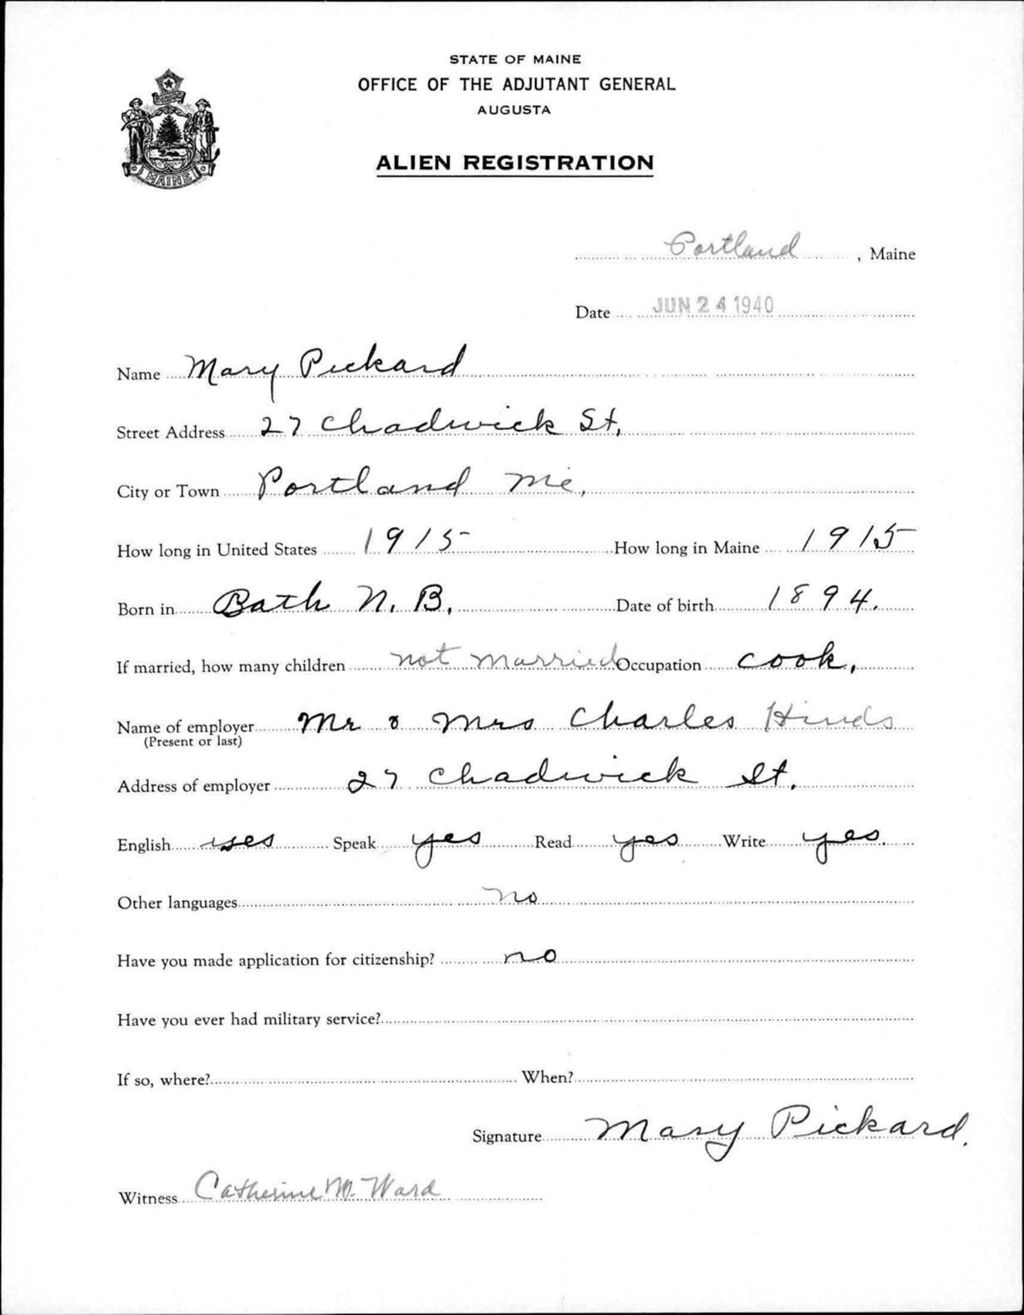 STATE OF MAINE
OFFICE OF THE ADJUTANT GENERAL
AUGUSTA
ALIEN REGISTRATION
MAINE
Portland, Maine
Date JUN 24 1940
Name Mary Pickard
Street Address 27 Chadwick St,
City or Town Portland Me,
How long in United States 1915 How long in Maine 1915
Born in Bath N. B. Date of birth 1894.
If married, how many children not married Occupation cook,
Name of employer Mr & Mrs Charles Hinds
(Present or last)
Address of employer 27 Chadwick St.
English yes Speak yes Read yes Write yes.
Other languages no
Have you made application for citizenship? no
Have you ever had military service?
If so, where? When?
Signature Mary Pickard.
Witness Catherine M. Ward